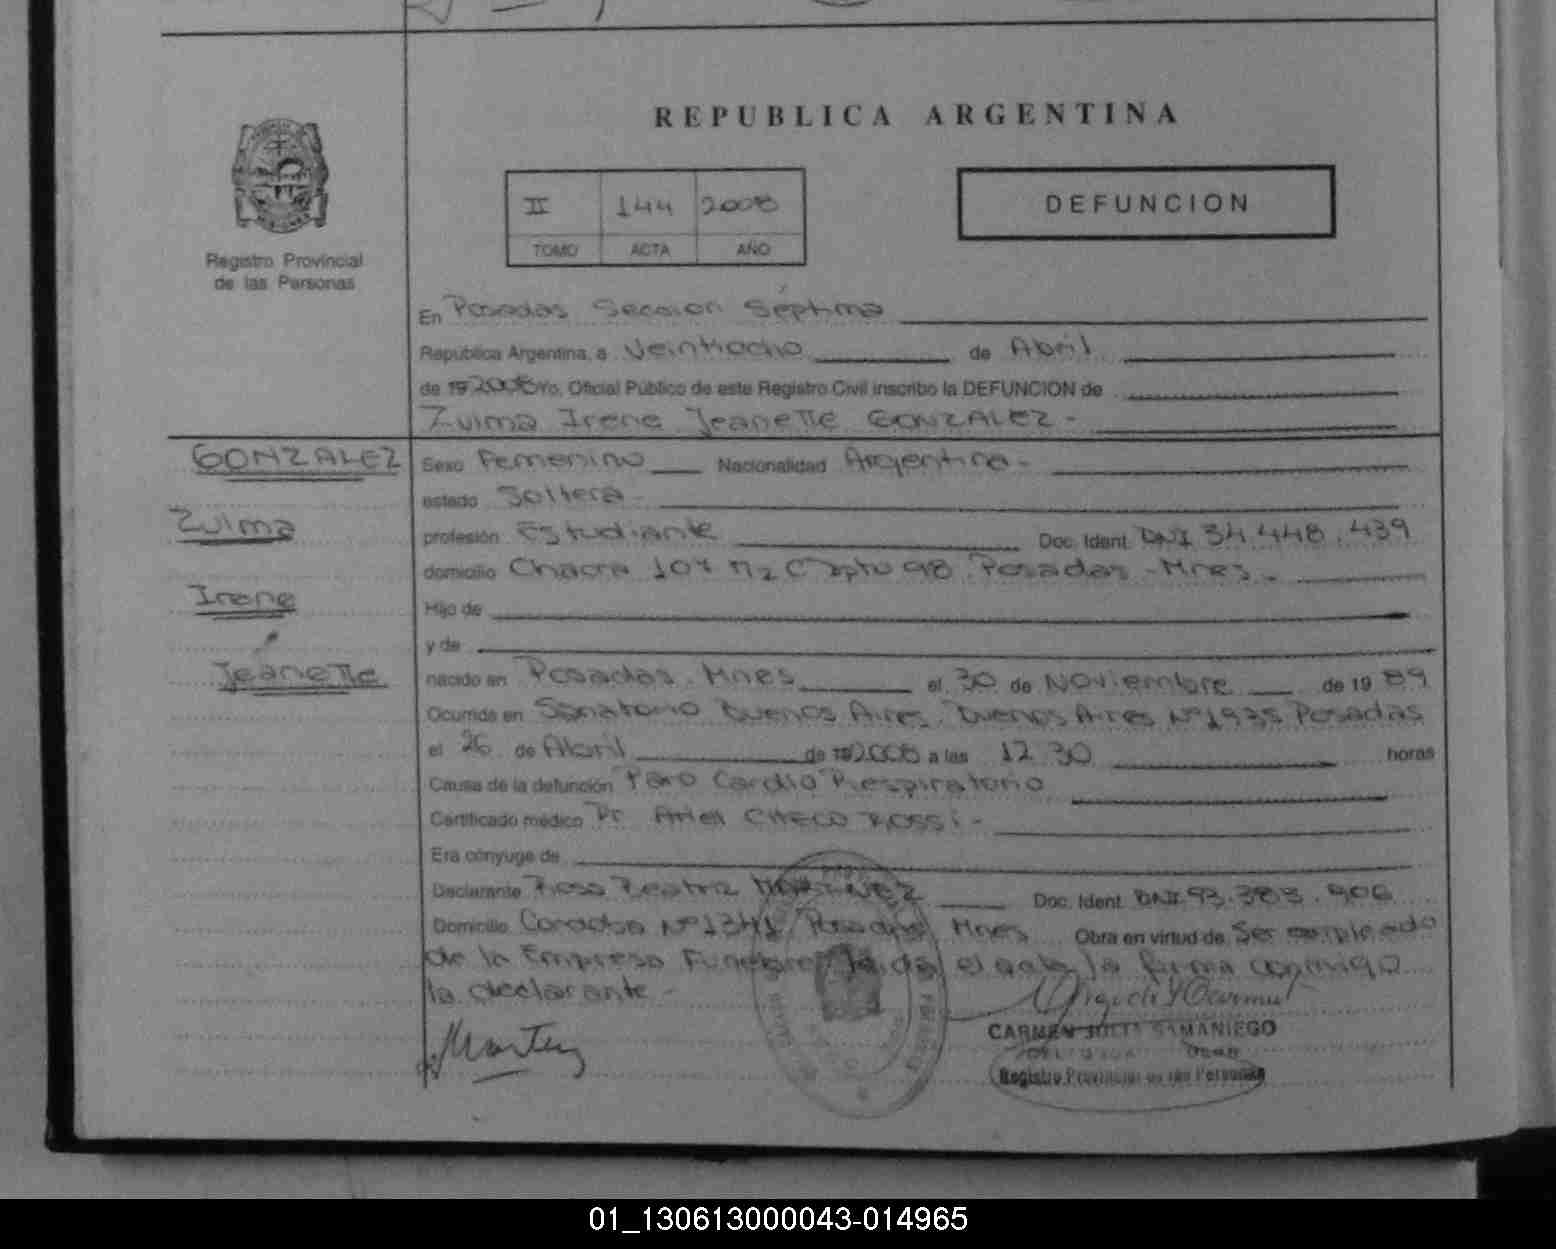 REPUBLICA ARGENTINA
II 144 2008
TOMO ACTA AÑO
DEFUNCION
Registro Provincial
de las Personas
En Posadas Sección Séptima
República Argentina, a Veintiocho de Abril
de 19 2008 Yo, Oficial Público de este Registro Civil inscribo la DEFUNCION de
Zulma Irene Jeanette GONZALEZ -
GONZALEZ
Zulma
Irene
Jeanette
Sexo Femenino Nacionalidad Argentina -
estado Soltera -
profesión Estudiante Doc. Ident. DNI 34.448.439
domicilio Chacra 107 Mz C Dpto 98 Posadas - Mnes -
Hijo de
y de
nacido en Posadas. Mnes el 30 de Noviembre de 19 89
Ocurrida en Sanatorio Buenos Aires. Buenos Aires Nº 1935 Posadas
el 26 de Abril de 19 2008 a las 12.30 horas
Causa de la defunción Paro Cardio Respiratorio
Certificado médico Dr. Ariel CHECO ROSSI -
Era cónyuge de
Declarante Rosa Beatriz MARTINEZ Doc. Ident. DNI 93.383.906
Domicilio Cordoba Nº 1341 Posadas Mnes Obra en virtud de Ser empleado
de la Empresa Funebre el acta la firma conmigo
la declarante -
CARMEN JULIA SAMANIEGO
Registro Provincial de las Personas
01_130613000043-014965